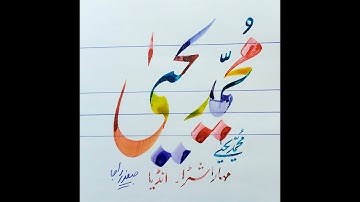 محمد یحییٰ
محمد یحییٰ
مہاراشٹرا۔ انڈیا